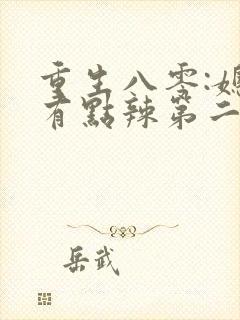 重生八零:媳
有點辣第二
岳武